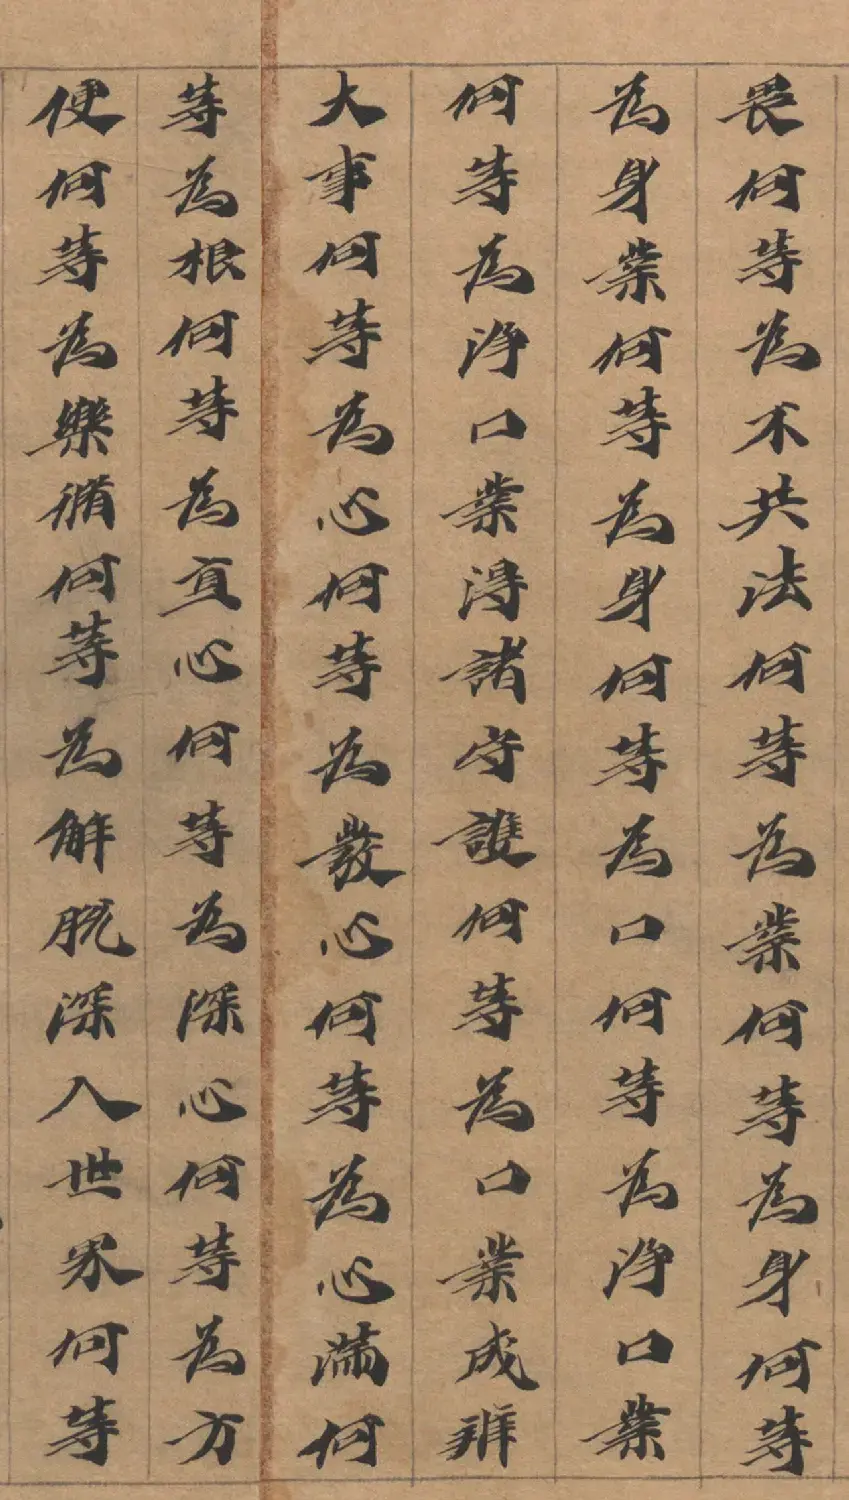 畏何等為不共法何等為業何等為身何等
為身業何等為身何等為口何等為淨口業
何等為淨口業得諸守護何等為口業成辨
大事何等為心何等為發心何等為心滿何
等為根何等為直心何等為深心何等為方
便何等為樂脩何等為解脫深入世界何等